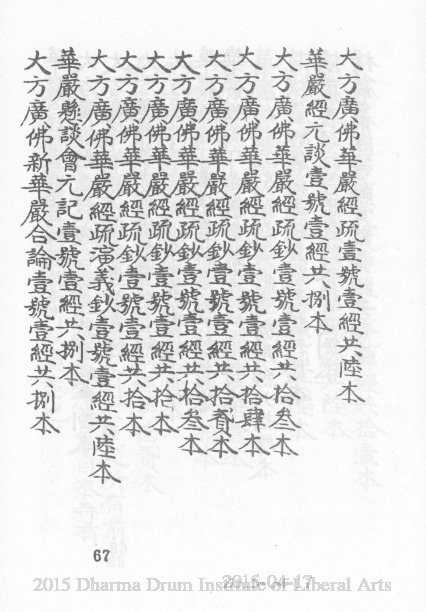 大方廣佛華嚴經疏壹號壹經共陸本
華嚴經元談壹號壹經共捌本
大方廣佛華嚴經疏鈔壹號壹經共拾叁本
大方廣佛華嚴經疏鈔壹號壹經共拾肆本
大方廣佛華嚴經疏鈔壹號壹經共拾貳本
大方廣佛華嚴經疏鈔壹號壹經共拾叁本
大方廣佛華嚴經疏鈔壹號壹經共拾本
大方廣佛華嚴經疏鈔壹號壹經共拾本
大方廣佛華嚴經疏演義鈔壹號壹經共陸本
華嚴懸談會元記壹號壹經共捌本
大方廣佛新華嚴合論壹號壹經共捌本
67
2015-04-17
2015 Dharma Drum Institute of Liberal Arts